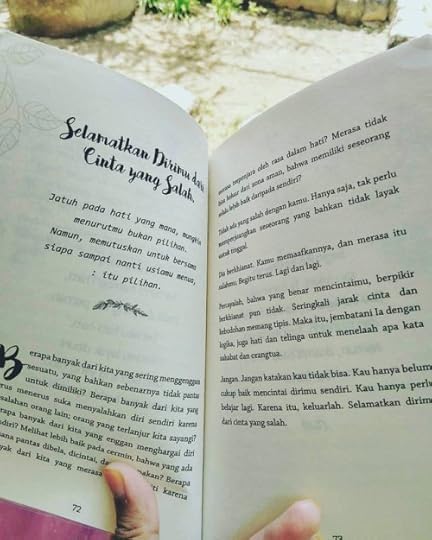 Selamatkan Dirimu dari
Cinta yang Salah.
Jatuh pada hati yang mana, mungkin
menurutmu bukan pilihan.
Namun, memutuskan untuk bersama
siapa sampai nanti usiamu menua,
: itu pilihan.
Berapa banyak dari kita yang sering menggenggam
sesuatu, yang bahkan sebenarnya tidak pantas
untuk dimiliki? Berapa banyak dari kita yang
terus menerus suka menyalahkan diri sendiri karena
kesalahan orang lain; orang yang terlanjur kita sayangi?
Berapa banyak dari kita yang enggan menghargai diri
sendiri? Melihat lebih baik pada cermin, bahwa yang ada
di sana pantas dibela, dicintai, Berapa
banyak dari kita yang merasa karena
72
merasa terpenjara oleh rasa dalam hati? Merasa tidak
bisa keluar dari zona aman, bahwa memiliki seseorang
selalu lebih baik daripada sendiri?
Tidak ada yang salah dengan kamu. Hanya saja, tak perlu
memperjuangkan seseorang yang bahkan tidak layak
untuk tinggal.
Dia berkhianat. Kamu memaafkannya, dan merasa itu
salahmu. Begitu terus. Lagi dan lagi.
Percayalah, bahwa yang benar mencintaimu, berpikir
berkhianat pun tidak. Seringkali jarak cinta dan
kebodohan memang tipis. Maka itu, jembatani Ia dengan
logika, juga hati dan telinga untuk menelaah apa kata
sahabat dan orangtua.
Jangan. Jangan katakan kau tidak bisa. Kau hanya belum
cukup baik mencintai dirimu sendiri. Kau hanya perlu
belajar lagi. Karena itu, keluarlah. Selamatkan dirimu
dari cinta yang salah.
73